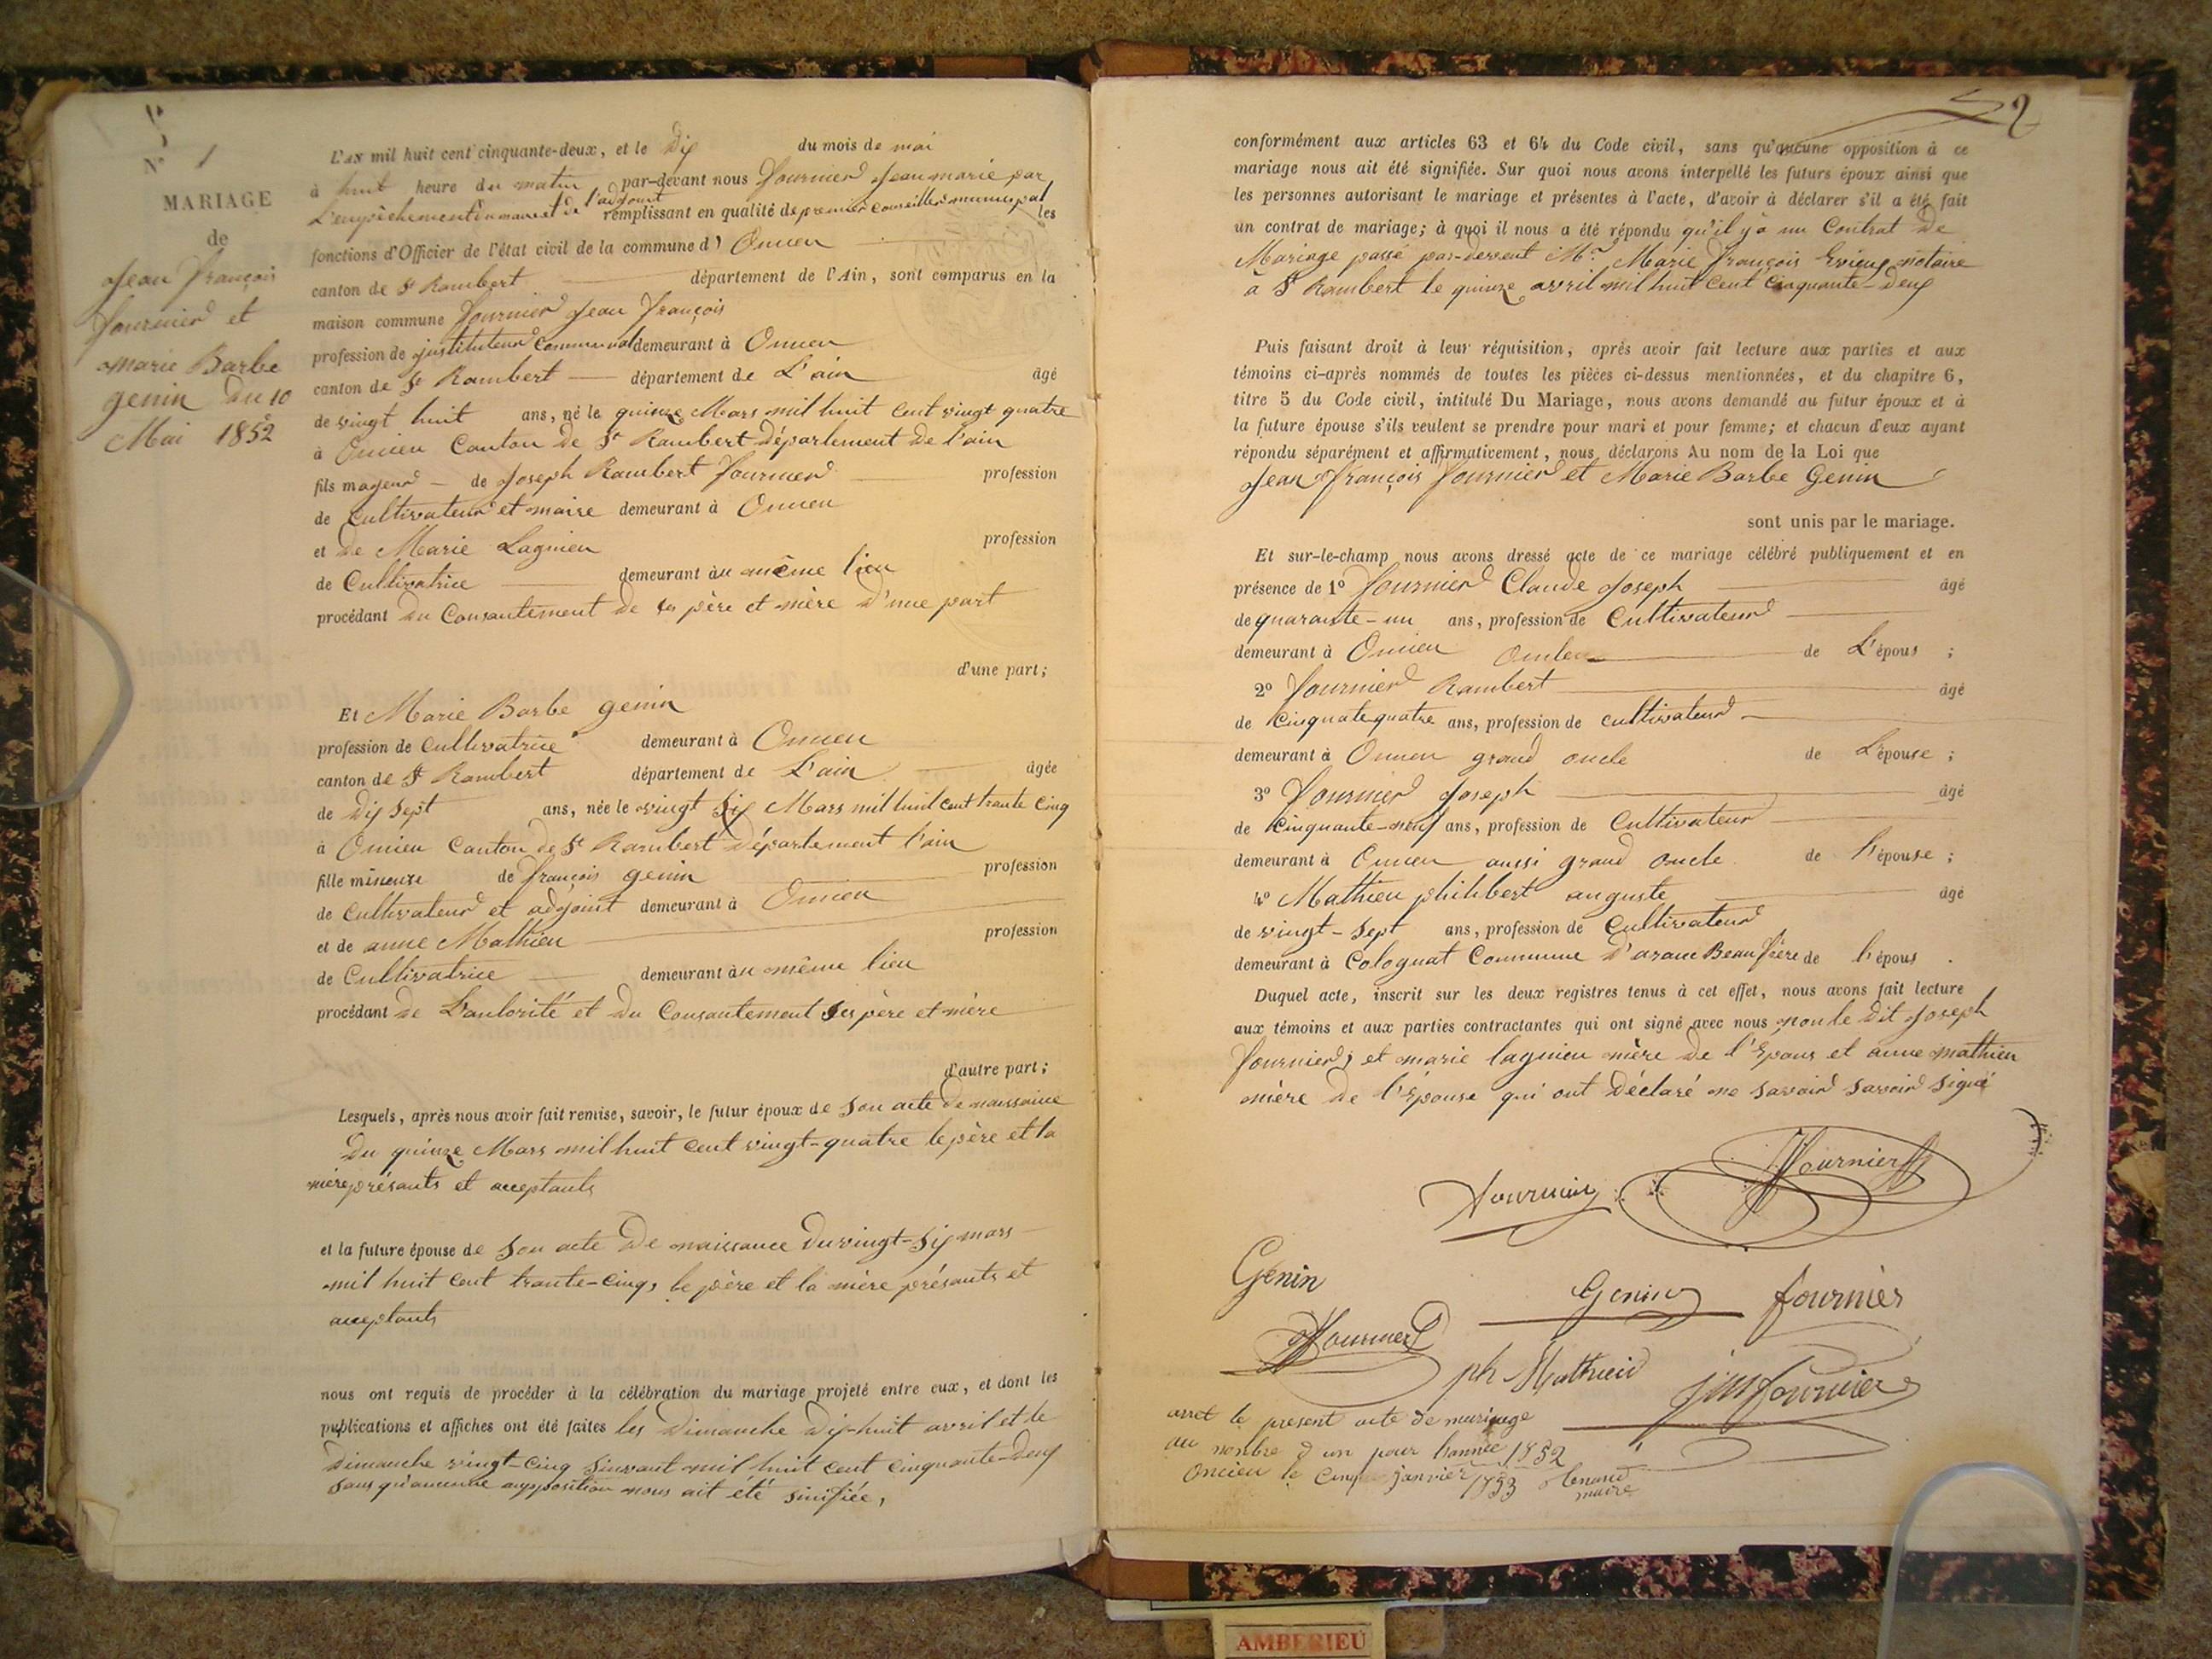 N° 1
MARIAGE
de
Jean françois
fournier et
marie Barbe
genin du 10
Mai 1852
L'AN mil huit cent cinquante-deux, et le Dix du mois de mai
à huit heure du matin par-devant nous fournier Jean marie par
L'empêchement du maire et de l'adjoint remplissant en qualité de premier conseiller municipal les
fonctions d'Officier de l'état civil de la commune d' Oncieu
canton de St Rambert département de l'Ain, sont comparus en la
maison commune fournier Jean françois
profession de instituteur communal demeurant à Oncieu
canton de St Rambert département de L'ain âgé
de vingt huit ans, né le quinze Mars mil huit cent vingt quatre
à Oncieu Canton de St Rambert Département de l'ain
fils majeur de Joseph Rambert fournier profession
de Cultivateur et maire demeurant à Oncieu
et de Marie Lagnieu profession
de Cultivatrice demeurant au même lieu
procédant du Consantement de ses père et mère d'une part
d'une part;
Et Marie Barbe genin
profession de Cultivatrice demeurant à Oncieu
canton de St Rambert département de L'ain âgée
de Dix Sept ans, née le vingt Six Mars mil huit cent trante Cinq
à Oncieu Canton de St Rambert Département l'ain
fille mineure de françois genin profession
de Cultivateur et adjoint demeurant à Oncieu
et de anne Mathieu profession
de Cultivatrice demeurant au même lieu
procédant de L'autorité et du Consantement Ses père et mère
d'autre part;
Lesquels, après nous avoir fait remise, savoir, le futur époux de Son acte de naissance
Du quinze Mars mil huit cent vingt-quatre le père et la
mère présants et acceptants
et la future épouse de Son acte de naissance du vingt-Six mars
mil huit cent trante-Cinq, le père et la mère présants et
acceptants
nous ont requis de procéder à la célébration du mariage projeté entre eux, et dont les
publications et affiches ont été faites les Dimanche Dix-huit avril et le
Dimanche vingt-Cinq Suivant mil huit cent cinquante-Deux
sans qu'aucunne aupposition nous ait été sinifiée,
2
conformément aux articles 63 et 64 du Code civil, sans qu'aucune opposition à ce
mariage nous ait été signifiée. Sur quoi nous avons interpellé les futurs époux ainsi que
les personnes autorisant le mariage et présentes à l'acte, d'avoir à déclarer s'il a été fait
un contrat de mariage; à quoi il nous a été répondu qu'il y a un Contrat De
Mariage passé par-devent Mr. Marie françois notaire
à St Rambert le quinze avril mil huit cent cinquante-Deux
Puis faisant droit à leur réquisition, après avoir fait lecture aux parties et aux
témoins ci-après nommés de toutes les pièces ci-dessus mentionnées, et du chapitre 6,
titre 5 du Code civil, intitulé Du Mariage, nous avons demandé au futur époux et à
la future épouse s'ils veulent se prendre pour mari et pour femme; et chacun d'eux ayant
répondu séparément et affirmativement, nous déclarons Au nom de la Loi que
Jean françois fournier et Marie Barbe Genin
sont unis par le mariage.
Et sur-le-champ nous avons dressé acte de ce mariage célébré publiquement et en
présence de 1° fournier Claude Joseph âgé
de quarante-un ans, profession de Cultivateur
demeurant à Oncieu de L'épous ;
2° fournier Rambert âgé
de Cinquate quatre ans, profession de cultivateur
demeurant à Oncieu grand oncle de L'épouse ;
3° fournier Joseph âgé
de Cinquante-neuf ans, profession de Cultivateur
demeurant à Oncieu aussi grand oncle de l'épouse ;
4° Mathieu philibert auguste âgé
de vingt-Sept ans, profession de Cultivateur
demeurant à Colognat Commune D'aranc Beau frère de l'épous .
Duquel acte, inscrit sur les deux registres tenus à cet effet, nous avons fait lecture
aux témoins et aux parties contractantes qui ont signé avec nous non le dit Joseph
fournier, et marie lagnieu mère de l'Epous et anne mathieu
mère de l'Epouse qui ont Déclaré ne savoir savoir signé
fournier fournier
Genin Genin fournier
fournier ph Mathieu fournier
arret le present acte de mariage
au nonbre d un pour lannee 1852
Oncieu le Cinq janvier 1853
maire
AMBERIEU